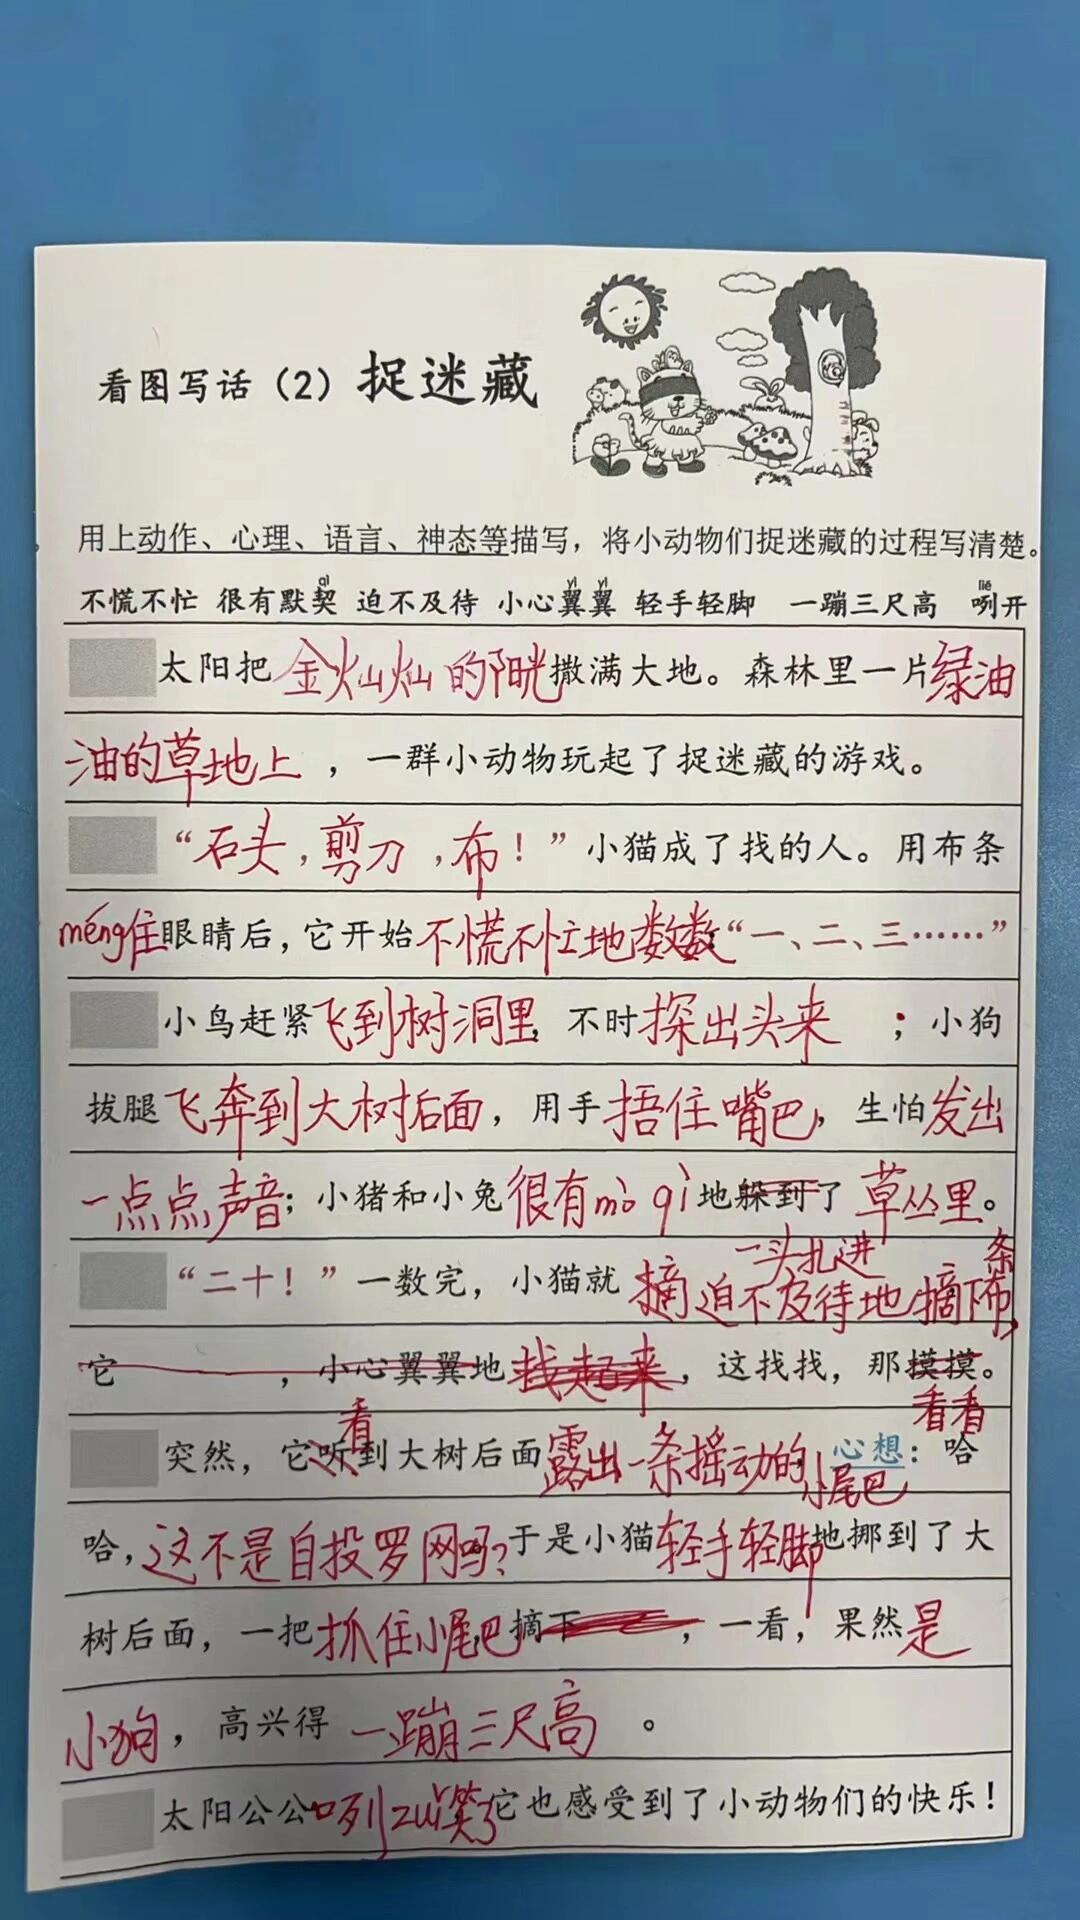 看图写话（2）捉迷藏
用上动作、心理、语言、神态等描写，将小动物们捉迷藏的过程写清楚。
qì yì yì liě
不慌不忙 很有默契 迫不及待 小心翼翼 轻手轻脚 一蹦三尺高 咧开
太阳把金灿灿的阳光撒满大地。森林里一片绿油
油的草地上，一群小动物玩起了捉迷藏的游戏。
“石头，剪刀，布！”小猫成了找的人。用布条
méng住眼睛后，它开始不慌不忙地数数“一、二、三……”
小鸟赶紧飞到树洞里，不时探出头来；小狗
拔腿飞奔到大树后面，用手捂住嘴巴，生怕发出
一点点声音；小猪和小兔很有mò qì地躲到了草丛里。
一头扎进 条
“二十！”一数完，小猫就摘迫不及待地摘下布，
它，小心翼翼地找起来，这找找，那摸摸。
看 看看
突然，它听到大树后面露出一条摇动的，心想：哈
小尾巴
哈，这不是自投罗网吗？于是小猫轻手轻脚地挪到了大
树后面，一把抓住小尾巴，摘下，一看，果然是
小狗，高兴得一蹦三尺高。
太阳公公咧zuǐ笑了，它也感受到了小动物们的快乐！